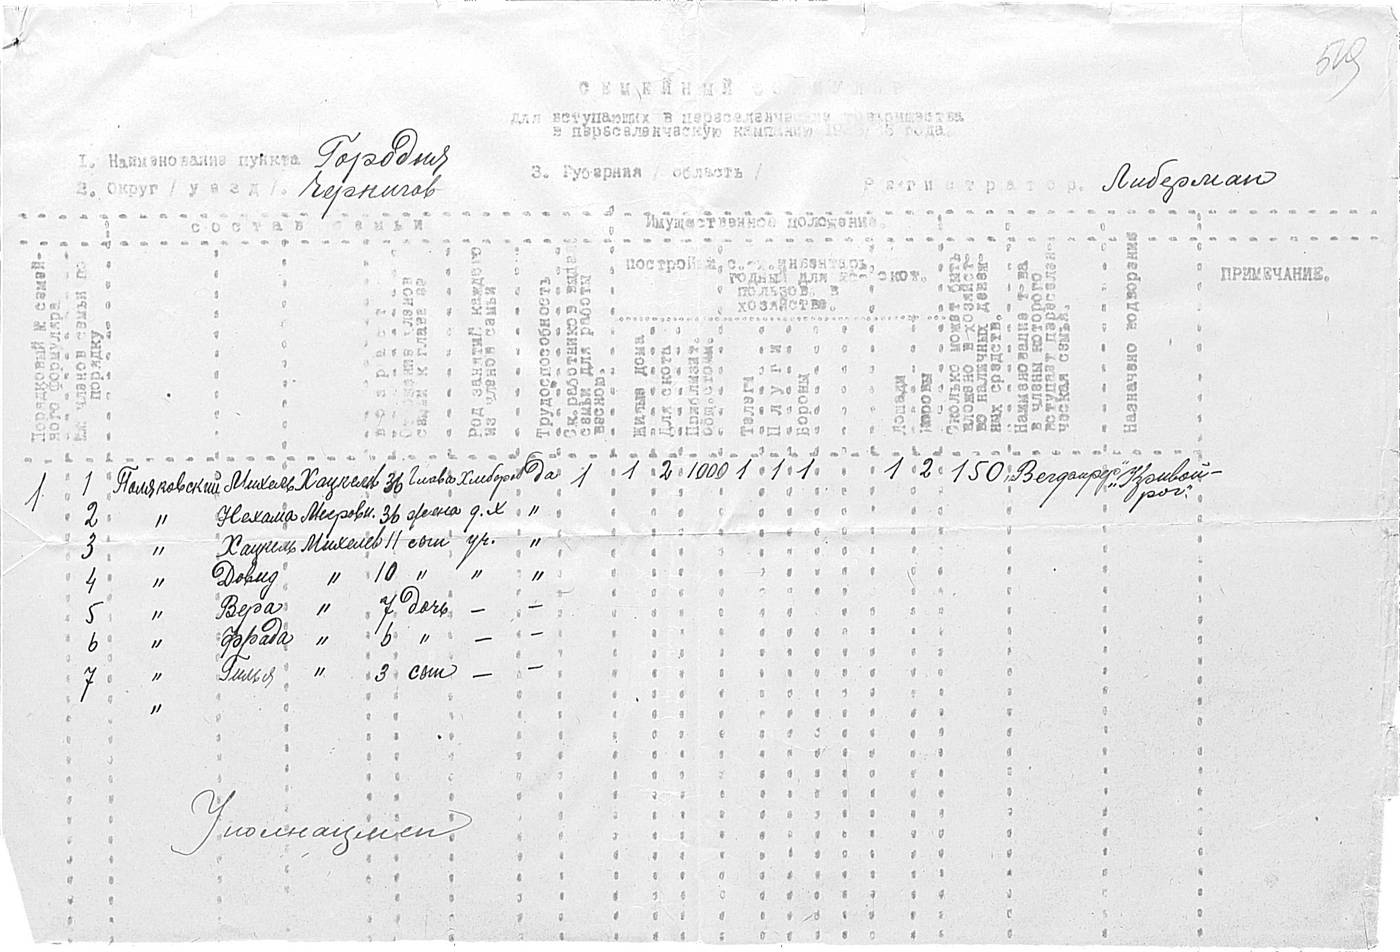 549
СЕМЕЙНЫЙ
для вступающих в переселенческие товарищества
в переселенческую кампанию года.
1. Наименование пункта Городня
2. Округ / уезд /. Чернигов
3. Губерния / область /
Регистратор. Либерман
состав семьи
Имущественное положение.
Порядковый № семей-
ного формуляра
членов семьи по
порядку
возраст
членов
семьи к главе ее
Род занятий каждого
из членов семьи
Трудоспособность
Ск. работников выдел.
семьи для работы
весною.
постройки
с.-х. инвентарь,
годный для
пользов. в
хозяйстве.
скот.
Жилые дома
Для скота
Приблизит.
общ. стоим.
Телеги
Плуги
Бороны
Лошади
Коровы
Сколько может быть
вложено в хозяйст-
во наличных денеж-
ных средств.
Наименование т-ва
в члены которого
вступает переселен-
ческая семья.
Назначено водворения
ПРИМЕЧАНИЕ.
1 1 Поляковский Михель Хацкелев 36 Глава Хлебороб да 1 1 2 1000 1 1 1 1 2 150 "Кривой-
рог"
2 " Нехама 36 жена д.х "
3 " Хацкель Михелев 11 сын уч. "
4 " Довид " 10 " " "
5 " Вера " 7 дочь — —
6 " Фрада " 6 " — —
7 " Гилья " 3 сын — —
"
Уполнацмен